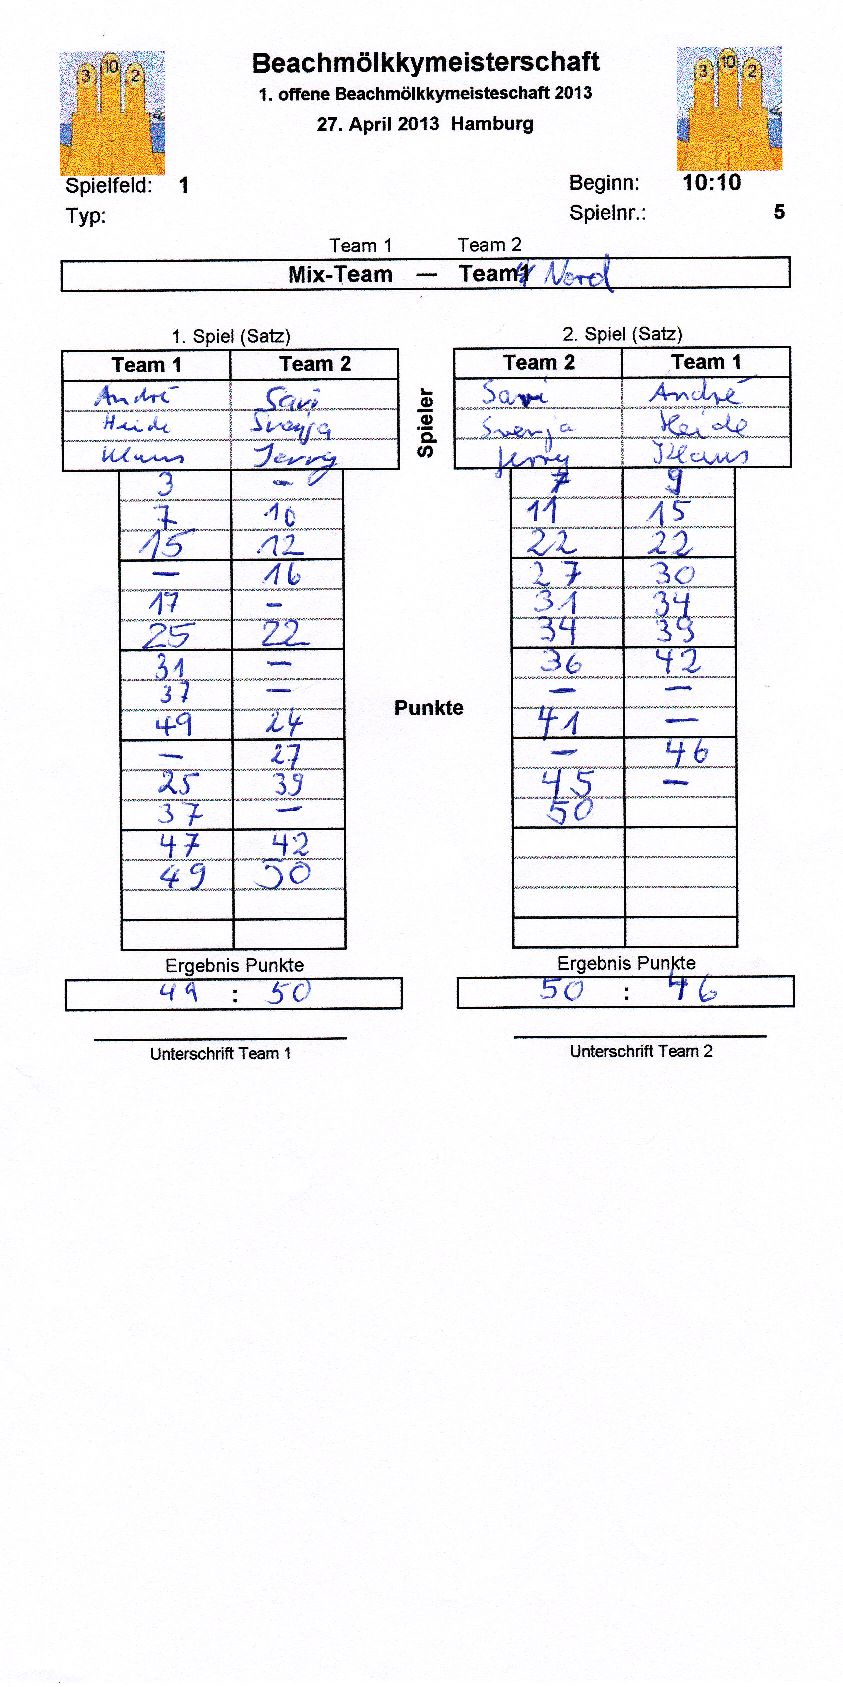 3 10 2
3 10 2
Beachmölkkymeisterschaft
1. offene Beachmölkkymeisteschaft 2013
27. April 2013 Hamburg
Spielfeld: 1
Beginn: 10:10
Typ:
Spielnr.: 5
Team 1 Team 2
Mix-Team — Team Nord
1. Spiel (Satz)
Team 1 Team 2
André Savi
Heide Svenja
Klaus Jerry
3 –
7 10
15 12
– 16
17 –
25 22
31 –
37 –
49 24
– 27
25 39
37 –
47 42
49 50
Ergebnis Punkte
49 : 50
Unterschrift Team 1
Spieler
Punkte
2. Spiel (Satz)
Team 2 Team 1
Savi André
Svenja Heide
Jerry Klaus
7 9
11 15
22 22
27 30
31 34
34 39
36 42
– –
41 –
– 46
45 –
50
Ergebnis Punkte
50 : 46
Unterschrift Team 2